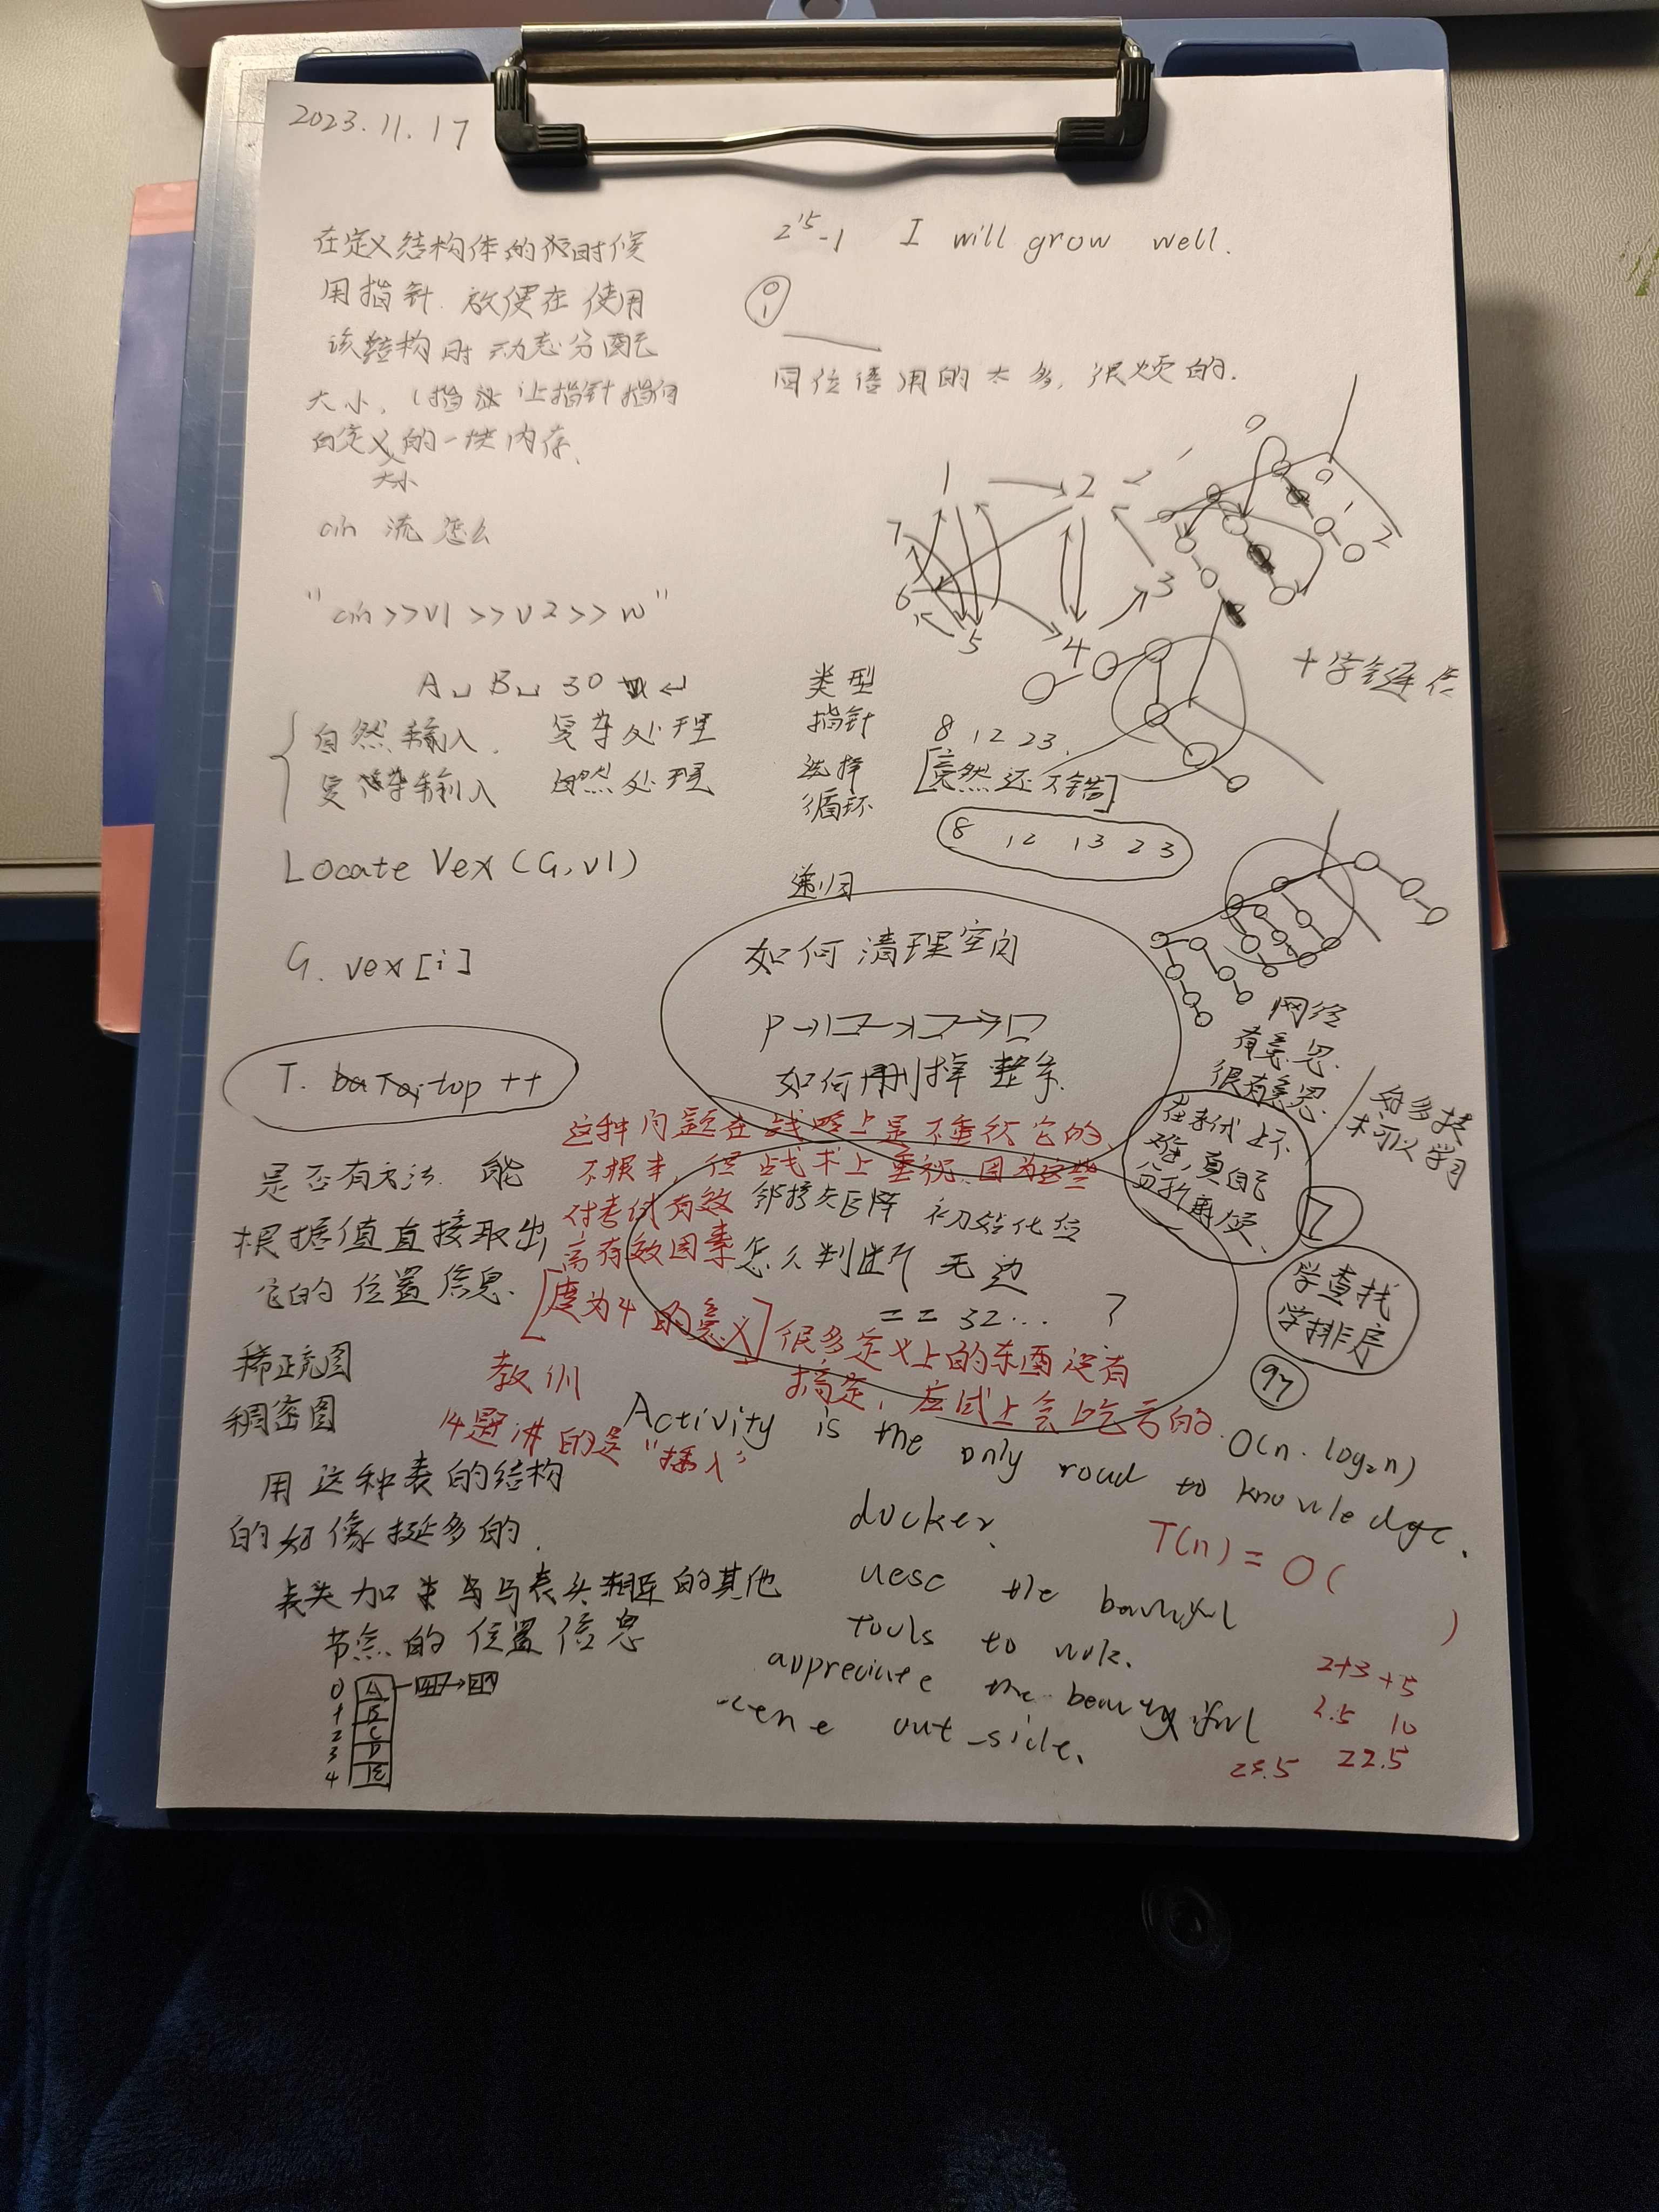 2023.11.17
在定义结构体的时候
用指针 放便在使用
该结构时动态分配
大小,(指 让指针指向
自定义的一块内存、
大小
cin 流 怎么
"cin>>v1>>v2>>w"
A␣B␣30 ↵
自然输入. 复杂处理
复杂输入 自然处理
Locate Vex(G,v1)
G. vex[i]
top ++
是否有方法. 能
根据值直接取出,
它的位置信息.
稀疏图
稠密图
用这种表的结构
的好像挺多的.
表头加 与与表头相连的其他
节点的位置信息
0 A
1 B
2 C
3 D
4 E
2^15-1 I will grow well.
0
1
用的太多,很烦的.
1 2
7
6 3
5 4
0 1 2
0 1 2
十字链表
类型
指针
选择
循环
递归
8 12 23.
[竟然还不错]
8 12 13 23
如何清理空间
P→
如何删掉 整条
网络
有意思
很有意思
对多模
学习
在考试上不
难,真自己
分析再
7
学查找
学排序
97
这种问题在战略上是不重视它的,
不根本,但战术上重视.因为这些
对考试有效
高有效因素
邻接矩阵 初始化位
怎么判断 无边
== 32... ?
[度为4的意义]
很多定义上的东西没有
搞定,应试上会吃亏的.
教训
14题讲的是"插入"
Activity is the only road to knowledge.
O(n·log₂n)
docker.
T(n) = O( )
uesc the beautiful
tools to work.
appreciate the beautiful
out-side.
2+3+5
2.5 10
22.5